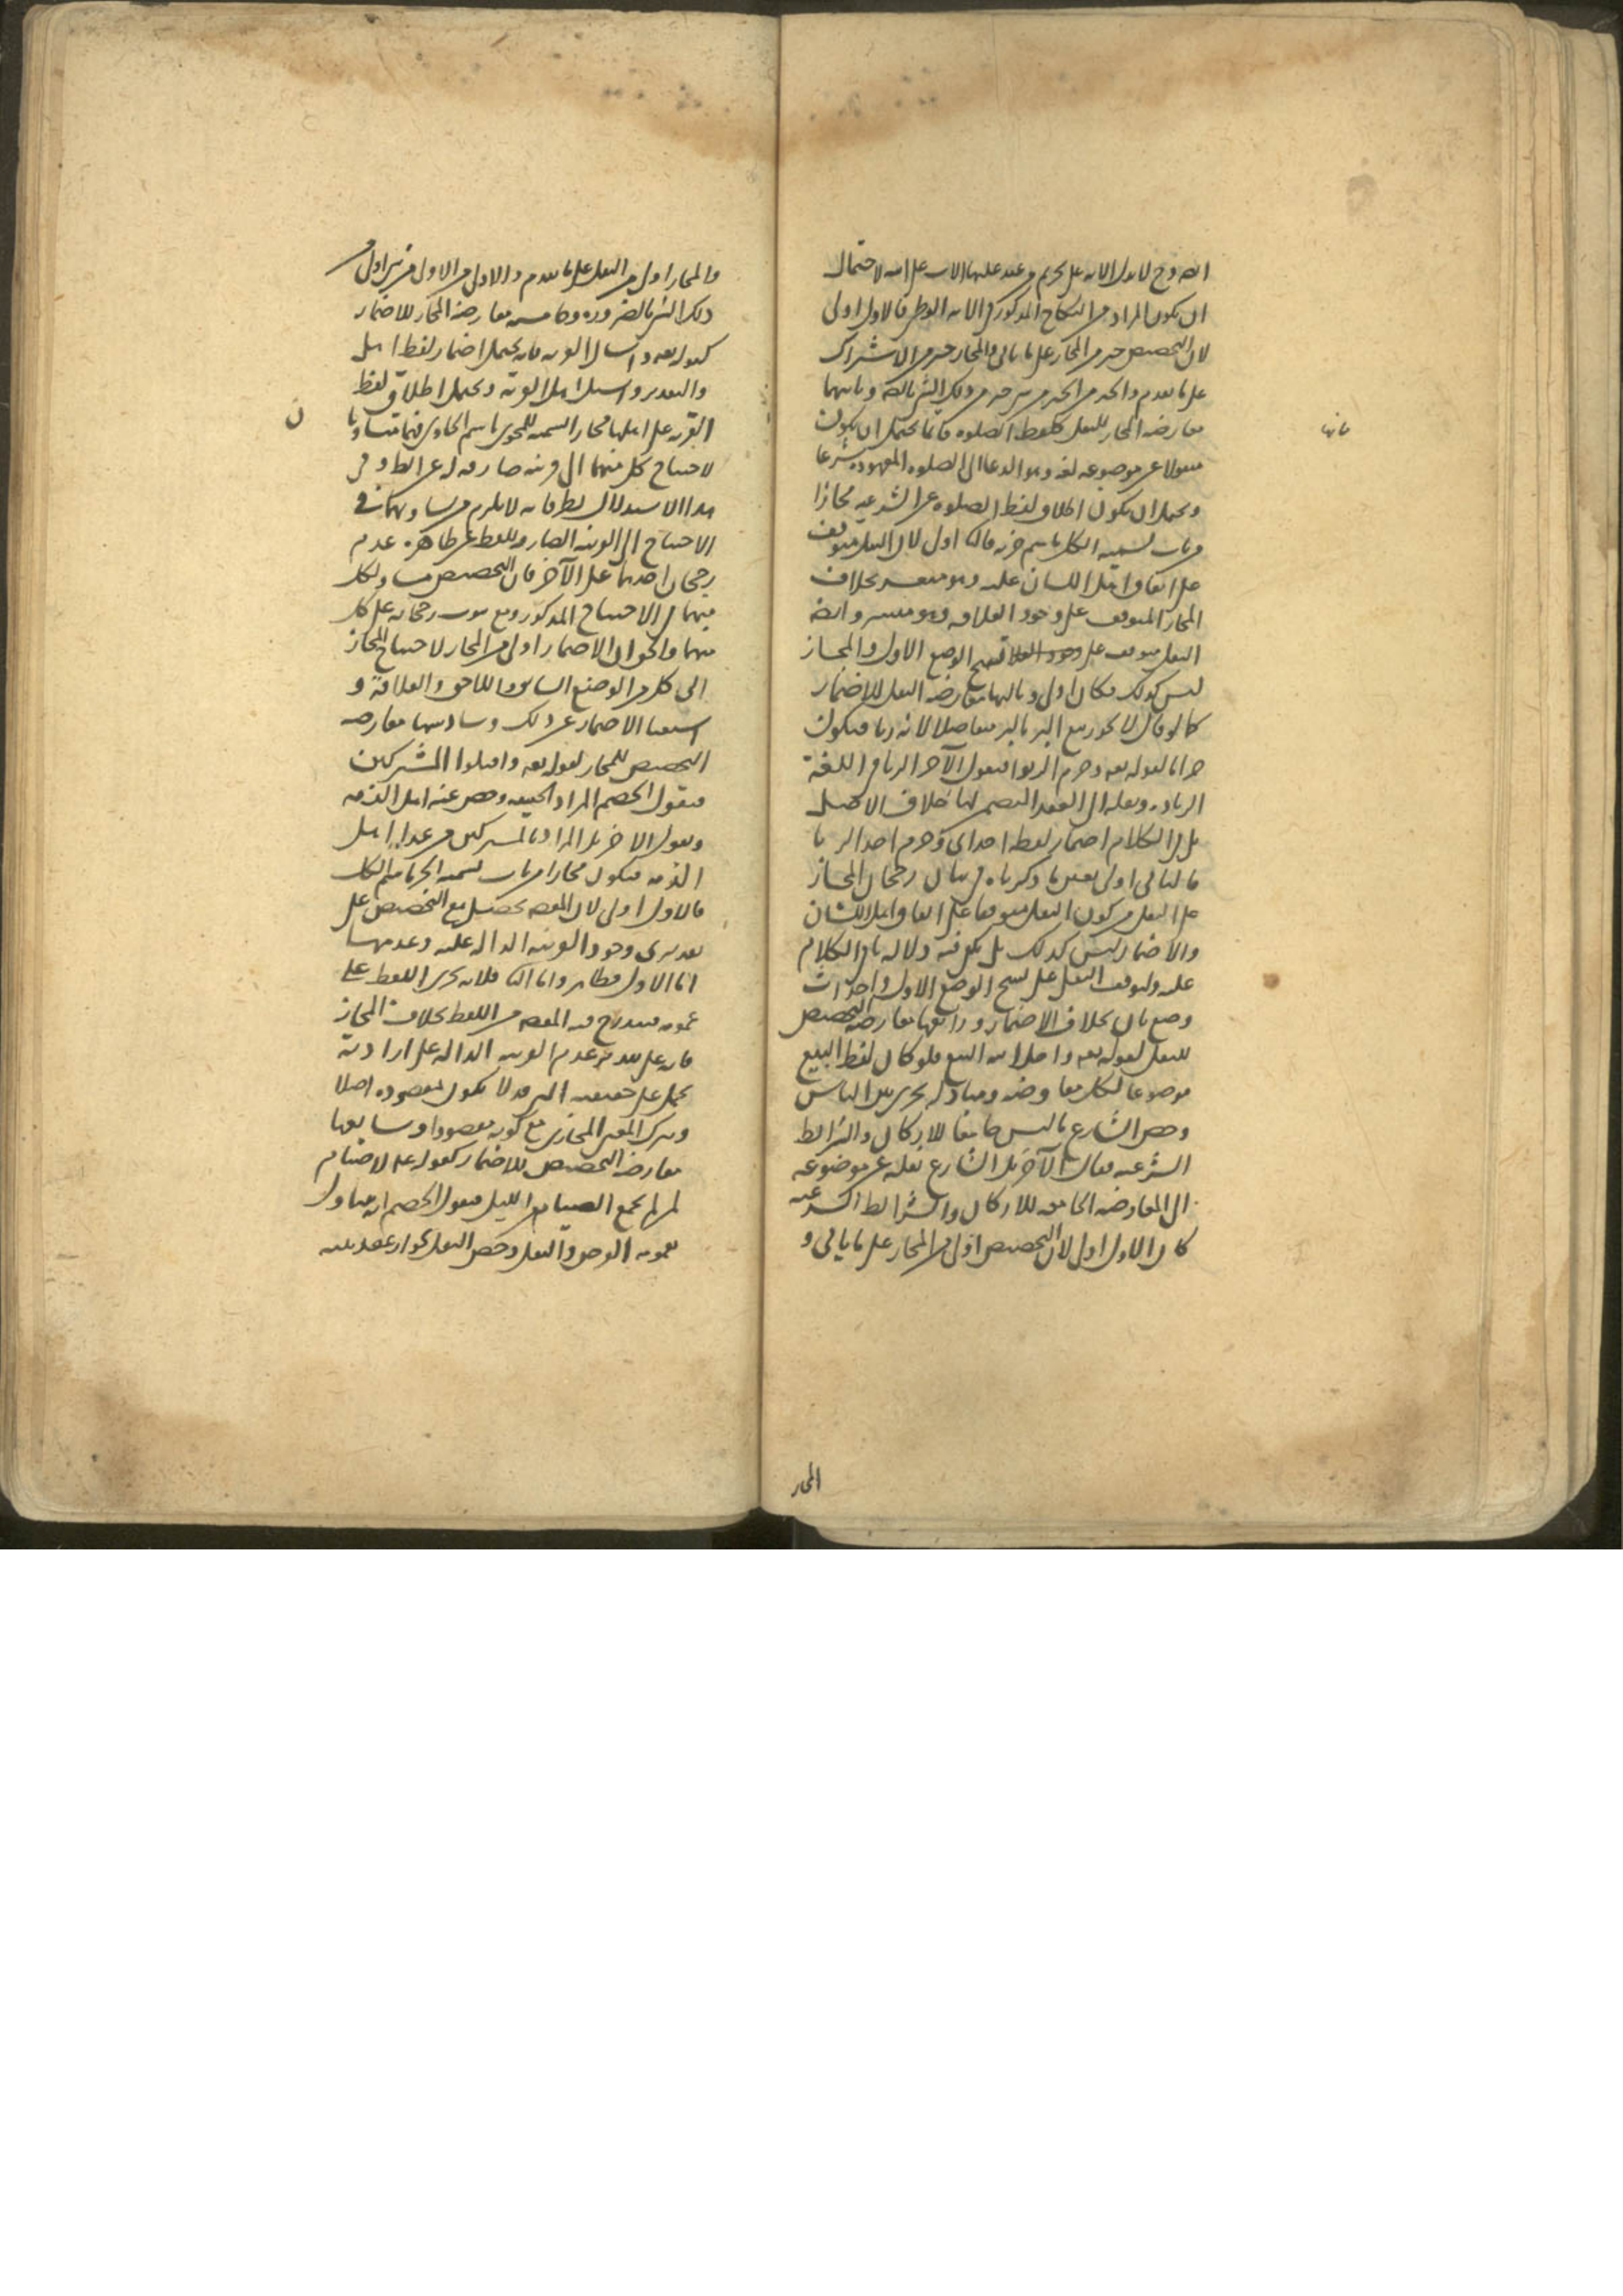 ان يكون المراد من النكاح المذكور في الاية الوطى فالاول اولى
لان التخصيص خير من المجاز على ما ياتى والمجاز خير من الاشتراك
على ما تقدم والخير من الخير من شى خير من ذلك الشى بالضرورة وثانيها
معارضة المجاز للنقل كلفظ الصلوه فانما يحتمل ان يكون
منقولا عن موضوعه لغة وهو الدعا الى الصلوه المعهوده شرعا
ويحتمل ان يكون اطلاق لفظ الصلوه على الشرعيه مجازا
من باب تسميه الكل باسم جزيه فالثا اولى لان النقل متوقف
على اتفاق اهل اللسان عليه وهو متعسر بخلاف
المجاز المتوقف على وجود العلاقه وهو متيسر وايضا
النقل متوقف على نسخ الوضع الاول والمجاز
ليس كذلك فكان اولى وثالثها معارضة النقل للاضمار
كما لو قال لا يجوز بيع البر بالبر متفاضلا لانه ربا فيكون
حراما لقوله تعه وحرم الربوا فيقول الآخر الربا في اللغة
الزياده ونقله الى العقد المتضمن لها خلاف الاصل
بل في الكلام اضمار لفظه اخذ اى وحرم اخذ الربا
فالثانى اولى بعين ما ذكرناه في بيان رجحان المجاز
على النقل من كون النقل متوقفا على اتفاق اهل اللسان
والاضمار ليس كذلك بل يكفى فيه دلالة باقى الكلام
عليه ولتوقف النقل على نسخ الوضع الاول واحداث
وضع ثان بخلاف الاضمار ورابعها معارضة التخصيص
للنقل لقوله تعه واحل الله البيع فلو كان لفظ البيع
موضوعا لكل معاوضه ومبادله يجرى بين الناس
وخص الشارع ما ليس جامعا للاركان والشرائط
الشرعيه فقال الآخر بل الشارع نقله عن موضوعه
الى المعاوضه الجامعه للاركان والشرائط الشرعيه
كان الاول اولى لان التخصيص اولى من المجاز على ما ياتى و
ثانيها
المجاز
والمجاز اولى من النقل على ما تقدم والاولى من الاولى من شى اولى من
ذلك الشى بالضروره وخامسها معارضة المجاز للاضمار
كقوله تعه واسال القريه فانه يحتمل اضمار لفظ اهل
والتقدير واسئل اهل القرية ويحتمل اطلاق لفظ
القريه على اهلها مجازا لتسميه المحوى باسم الحاوى فهما متساويان
لاحتياج كل منهما الى قرينه صارفه عن الظ وفى
هذا الاستدلال نظر فانه لا يلزم من تساويهما فى
الاحتياج الى القرينه الصارفة للفظ عن ظاهره عدم
رجحان احدهما على الآخر فان التخصيص مساو لكل
منهما فى الاحتياج المذكور ومع ثبوت رجحانه على كل
منهما والحق ان الاضمار اولى من المجاز لاحتياج المجاز
الى كل من الوضع السابق واللاحق والعلاقة و
استغنا الاضمار عن ذلك وسادسها معارضه
التخصيص للمجاز لقوله تعه واقتلوا المشركين
فيقول الخصم المراد الحقيقه وخص عنه اهل الذمه
ويقول الاخر بل المراد بالمشركين من عدا اهل
الذمه فيكون مجازا من باب تسميه الجز باسم الكل
فالاول اولى لان المقصد يحصل مع التخصيص على
تقديرى وجود القرينه الداله عليه وعدمها
اما الاول فظاهر واما الثا فلانه يجرى اللفظ على
عمومه فيندرج فيه المقصد من اللفظ بخلاف المجاز
فانه على تقدير عدم القرينه الداله على ارادته
يحمل على حقيقته التى قد لا يكون مقصوده اصلا
ويترك المعنى المجازى مع كونه مقصودا وسابعها
معارضة التخصيص للاضمار كقوله عم لا صيام
لمن لم يجمع الصيام من الليل فيقول الخصم انه يتناول
بعمومه الفرض والنفل وخص النفل بجواز عقد نيته